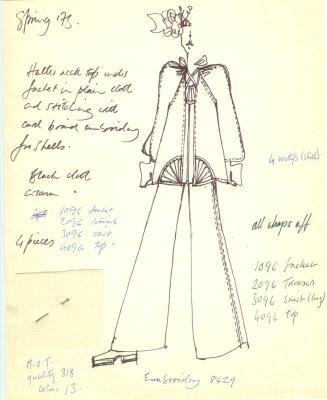 Spring '73.
Halter neck top under
Jacket in plain cloth
and stitching and
card board embroidery
for shells.
Black cloth
Cream "
4 pieces
1096 Jacket
2096 Trousers
3096 skirt
4096 Top.
4 motifs (shell)
all shops off
1096 Jacket
2096 Trouses
3096 Skirt (long)
4096 Top
M.O.T.
quality 818
colour 13.
Embroidery 8429